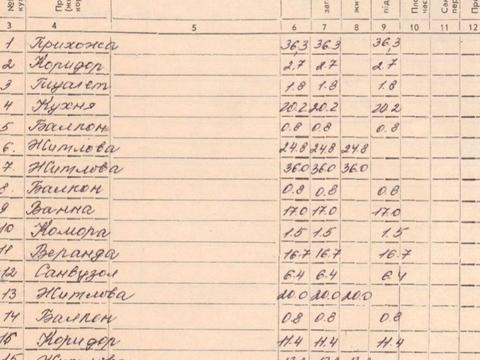 3 4 5 6 7 8 9 10 11 12
1 Прихожа 36,3 36.3 36,3
2 Коридор 2.7 2.7 2.7
3 Туалет 1.8 1.8 1.8
4 Кухня 20.2 20.2 20.2
5 Балкон 0.8 0.8 0.8
6. Житлова 24.8 24.8 24.8
7. Житлова 36.0 36.0 36.0
8. Балкон 0.8 0.8 0.8
9 Ванна 17.0 17.0 17.0
10 Комора 1.5 1.5 1.5
11 Веранда 16.7 16.7 16.7
12 Санвузол 6.4 6.4 6.4
13 Житлова 20.0 20.0 20.0
14 Балкон 0.8 0.8 0.8
15 Коридор 11.4 11.4 11.4